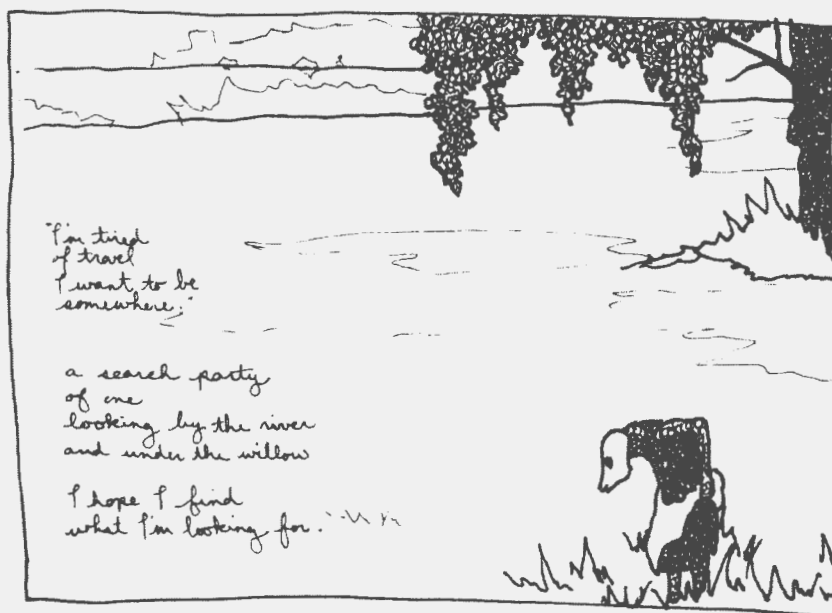 "I'm tired
of travel
I want to be
somewhere."
a search party
of one
looking by the river
and under the willow
I hope I find
what I'm looking for.